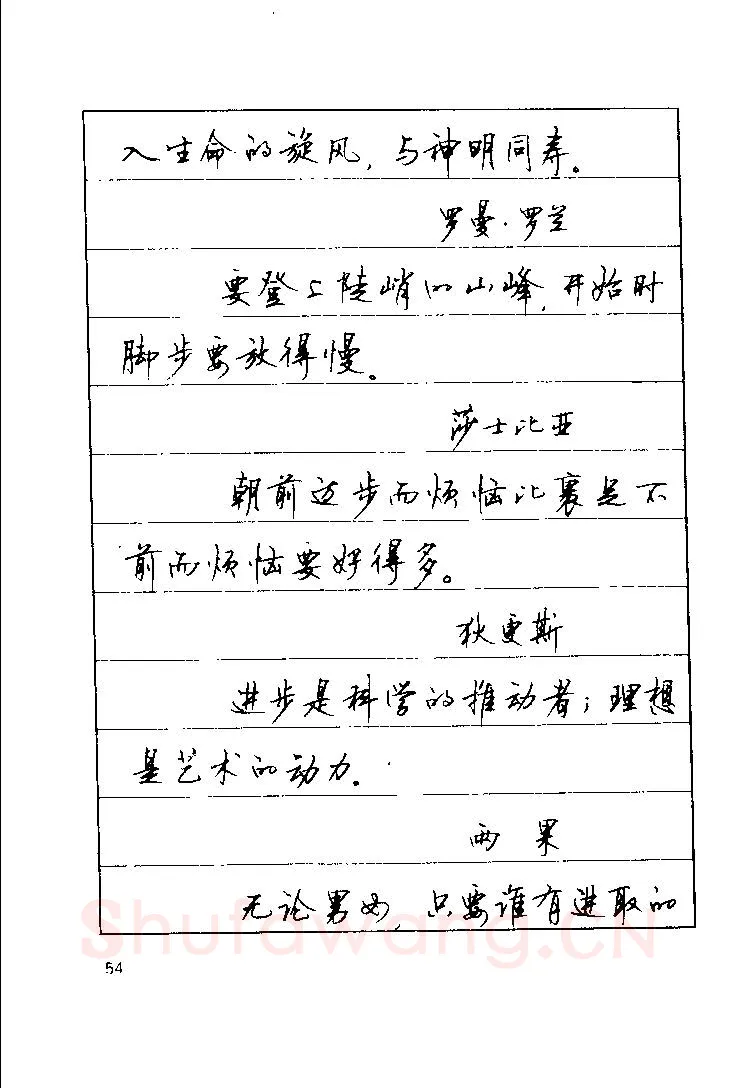 入生命的旋风,与神明同寿。
罗曼·罗兰
要登上陡峭的山峰,开始时
脚步要放得慢。
莎士比亚
朝前迈步而烦恼比裹足不
前而烦恼要好得多。
狄更斯
进步是科学的推动者;理想
是艺术的动力。
雨果
无论男女,只要谁有进取的
Shufawang.CN
54